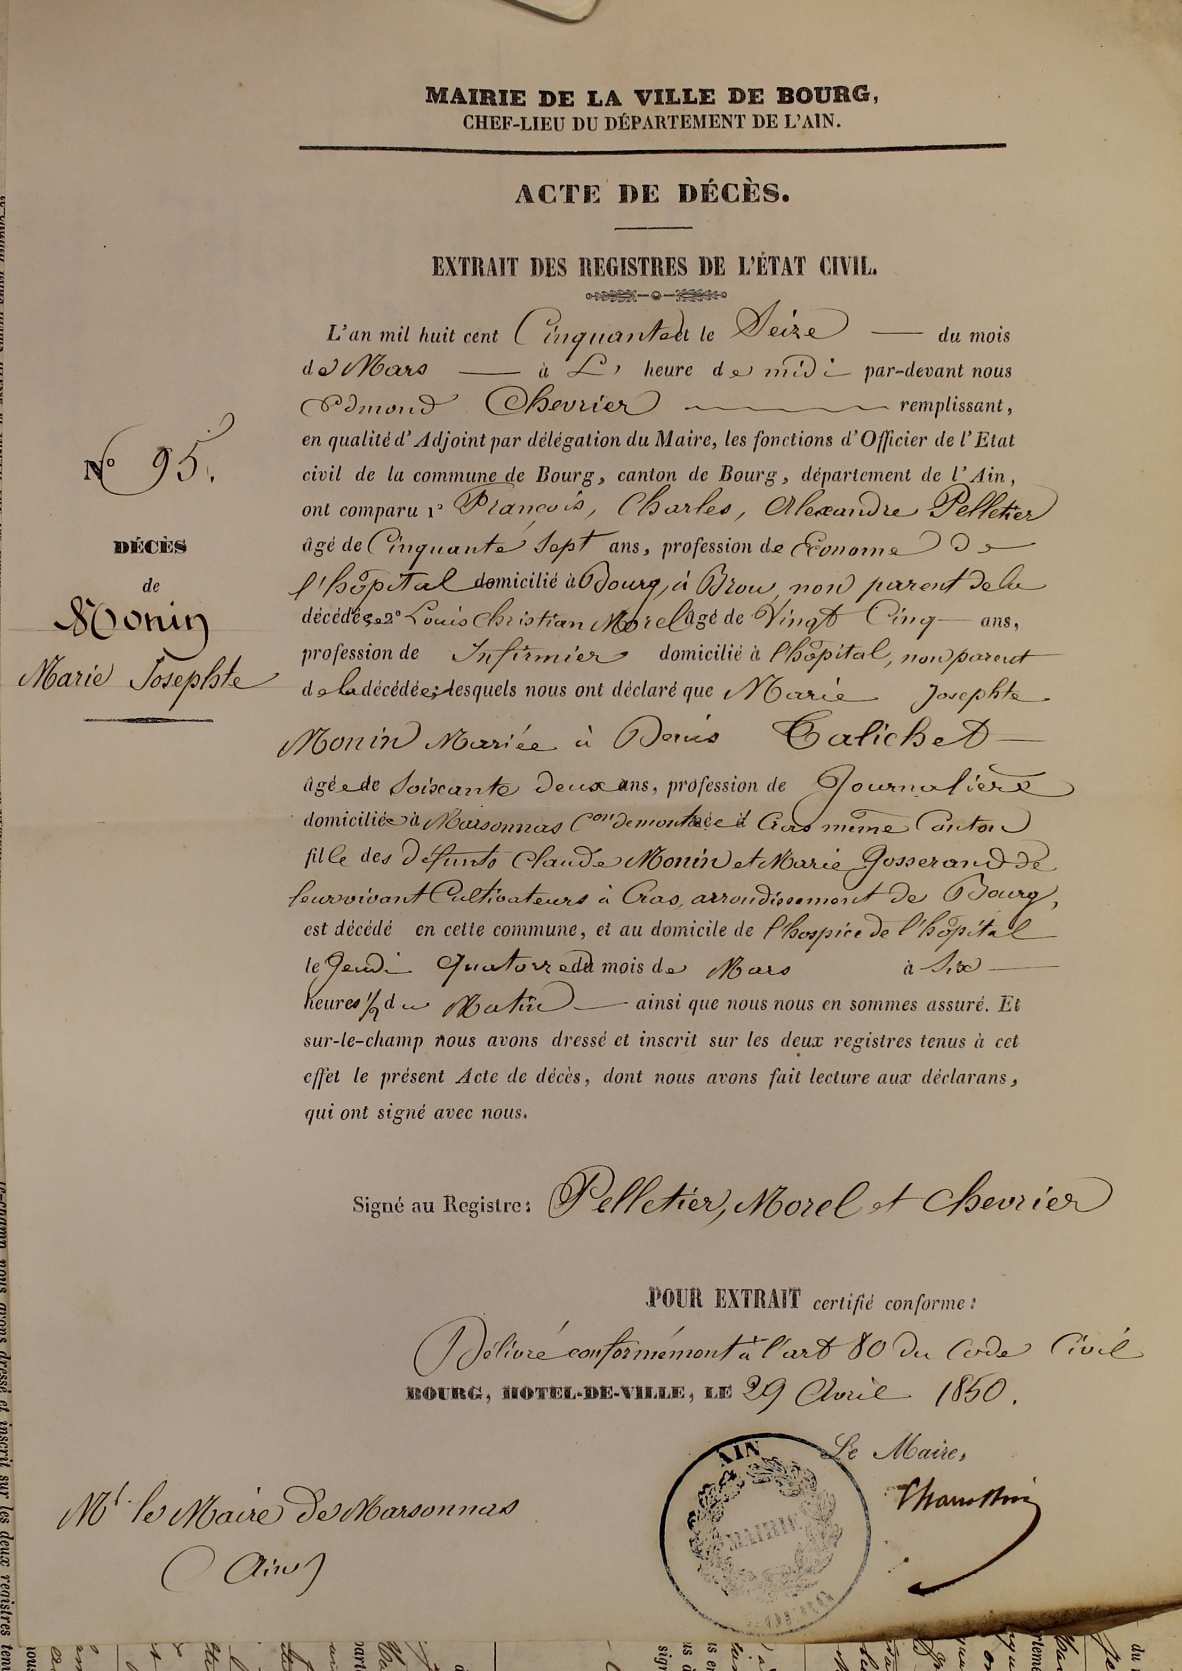 MAIRIE DE LA VILLE DE BOURG,
CHEF-LIEU DU DÉPARTEMENT DE L'AIN.
ACTE DE DÉCÈS.
EXTRAIT DES REGISTRES DE L'ÉTAT CIVIL.
L'an mil huit cent Cinquante et le Seize du mois
de Mars à L' heure de midi par-devant nous
Edmond Chevrier remplissant,
en qualité d'Adjoint par délégation du Maire, les fonctions d'Officier de l'Etat
civil de la commune de Bourg, canton de Bourg, département de l'Ain,
ont comparu 1° François, Charles, Alexandre Pelletier
âgé de Cinquante Sept ans, profession de Econome de
l'hôpital domicilié à Bourg, à Brou, non parent de la
décédée 2° Louis Christian Morel âgé de Vingt Cinq ans,
profession de Infirmier domicilié à l'hôpital, non parent
de la décédée; lesquels nous ont déclaré que Marie Josephte
Monin Mariée à Denis Calichet
âgée de Soixante deux ans, profession de Journalière
domiciliée à Marsonnas Con de mont née à Cras même Canton
fille des défunts Claude Monin et Marie Josserand de
leur vivant Cultivateurs à Cras, arrondissement de Bourg,
est décédé en cette commune, et au domicile de l'hospice de l'hôpital
le Jeudi Quatorze du mois de Mars à Six
heures 1/2 du Matin ainsi que nous nous en sommes assuré. Et
sur-le-champ nous avons dressé et inscrit sur les deux registres tenus à cet
effet le présent Acte de décès, dont nous avons fait lecture aux déclarans,
qui ont signé avec nous.
N° 95.
DÉCÈS
de
Monin
Marie Josephte
Signé au Registre: Pelletier, Morel et Chevrier
POUR EXTRAIT certifié conforme:
Délivré conformément à l'art 80 du Code Civil
BOURG, HOTEL-DE-VILLE, LE 29 Avril 1850.
Le Maire,
AIN
MAIRIE
BOURG
Mr le Maire de Marsonnas
(Ain)